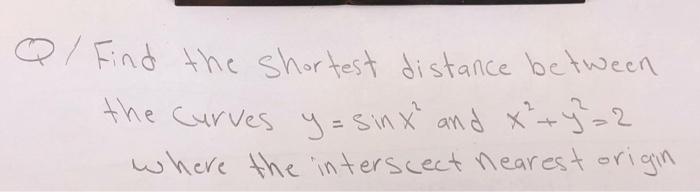 Q/ Find the shortest distance between
the curves y = sin x² and x² + y² = 2
where the interscect nearest origin